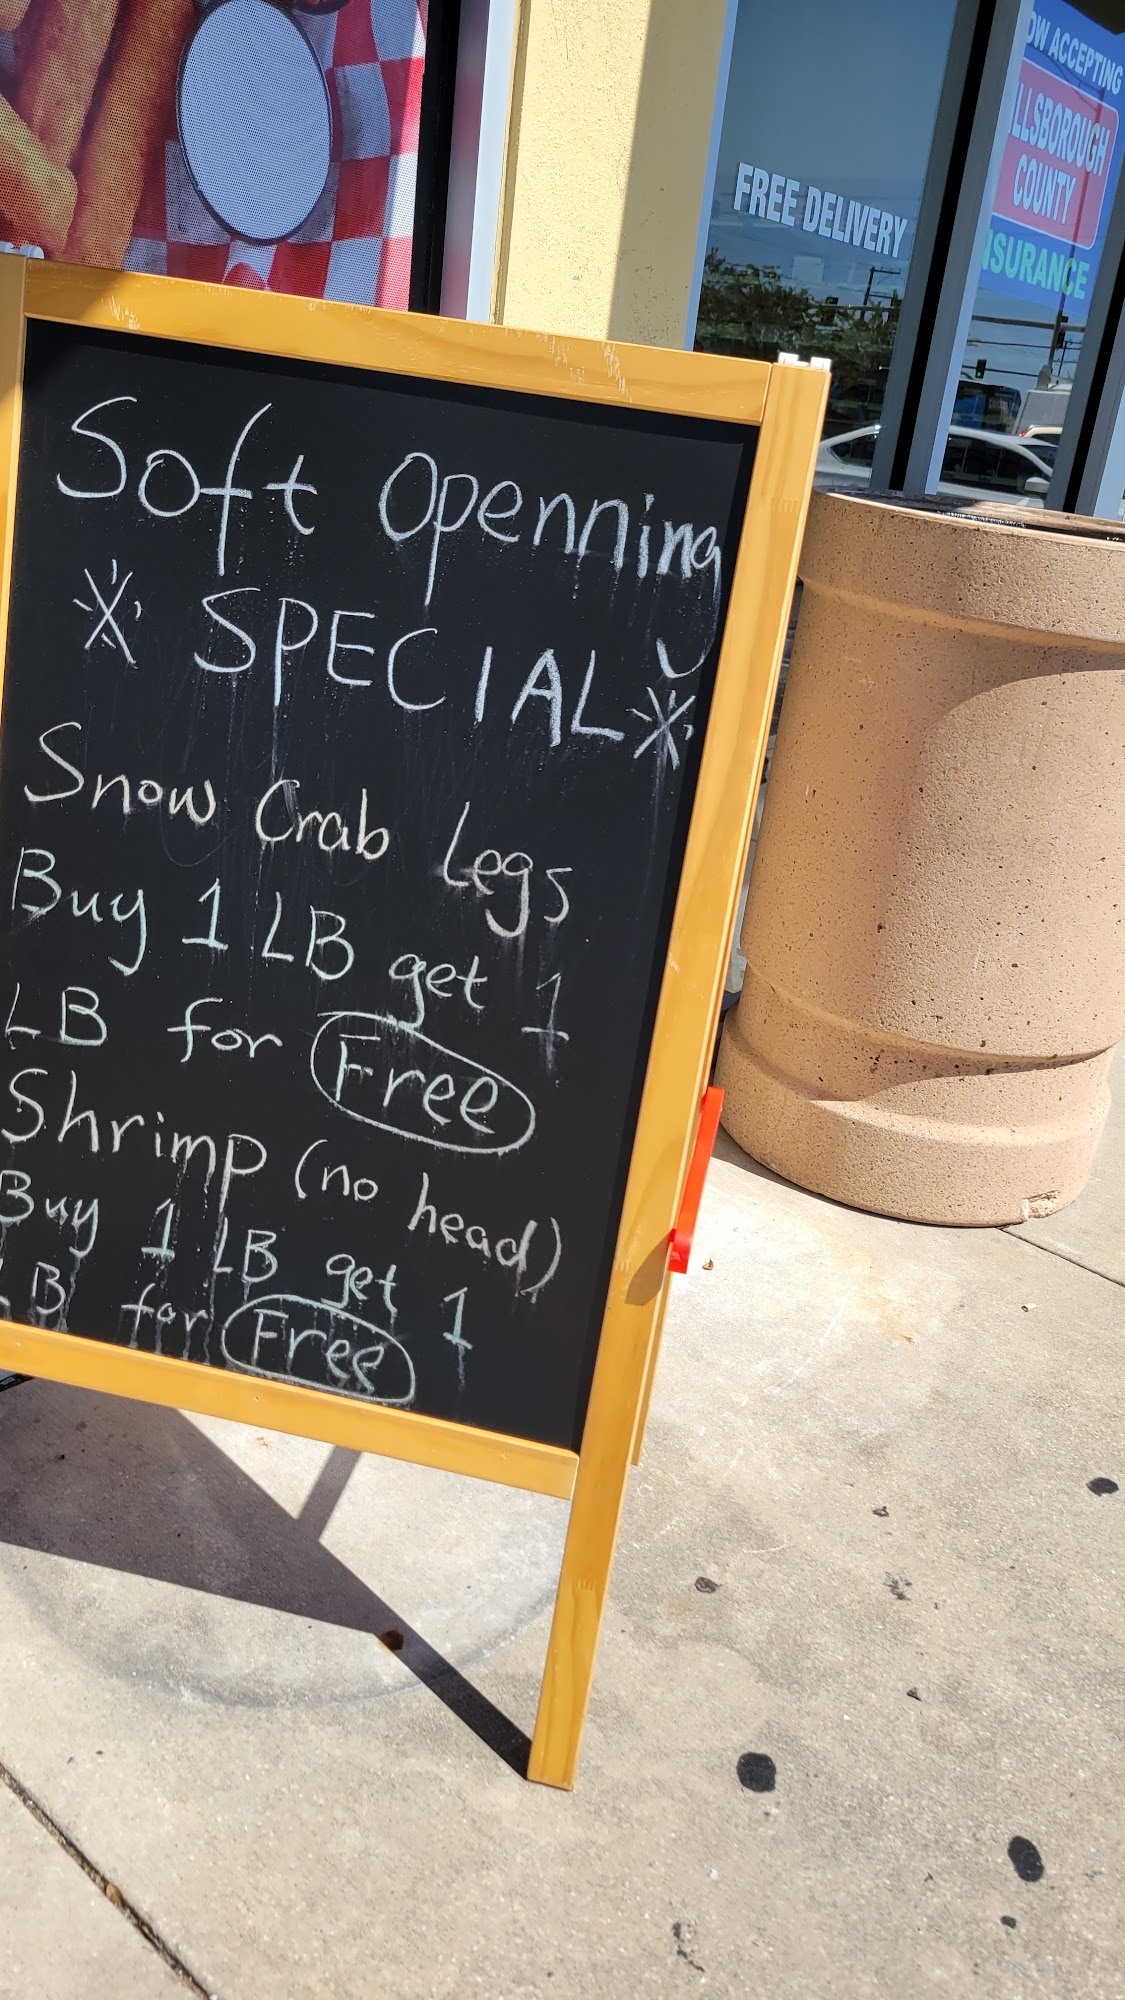 FREE DELIVERY
OW ACCEPTING
LLSBOROUGH
COUNTY
NSURANCE
Soft Openning
SPECIAL
Snow Crab Legs
Buy 1 LB get 1
LB for Free
Shrimp (no head)
Buy 1 LB get 1
LB for Free